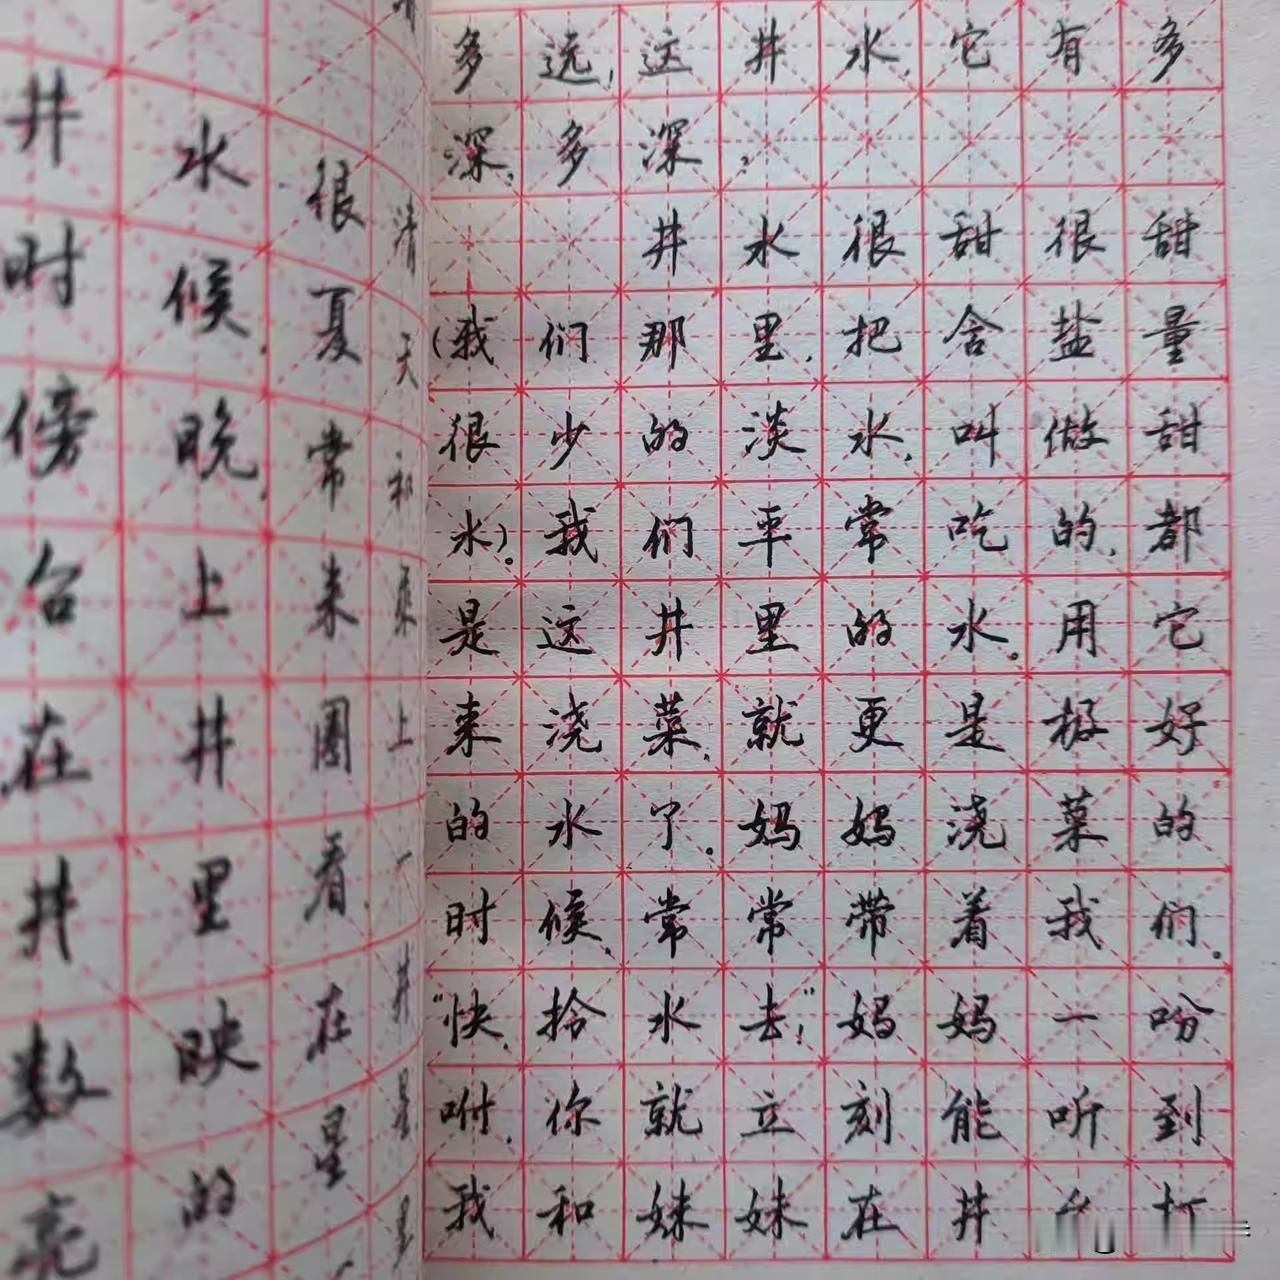 井水很清
时候,夏天
傍晚,常和
台上来
在井围上
井里看,一
数映在井
亮的星星
多选,这井水,它有多
深,多深,
井水很甜很甜
(我们那里,把含盐量
很少的淡水,叫做甜
水)。我们平常吃的,都
是这井里的水。用它
来浇菜,就更是极好
的水了。妈妈浇菜的
时候,常常带着我们。
“快,拾水去!”妈妈一吩
咐,你就立刻能听到
我和妹妹在井